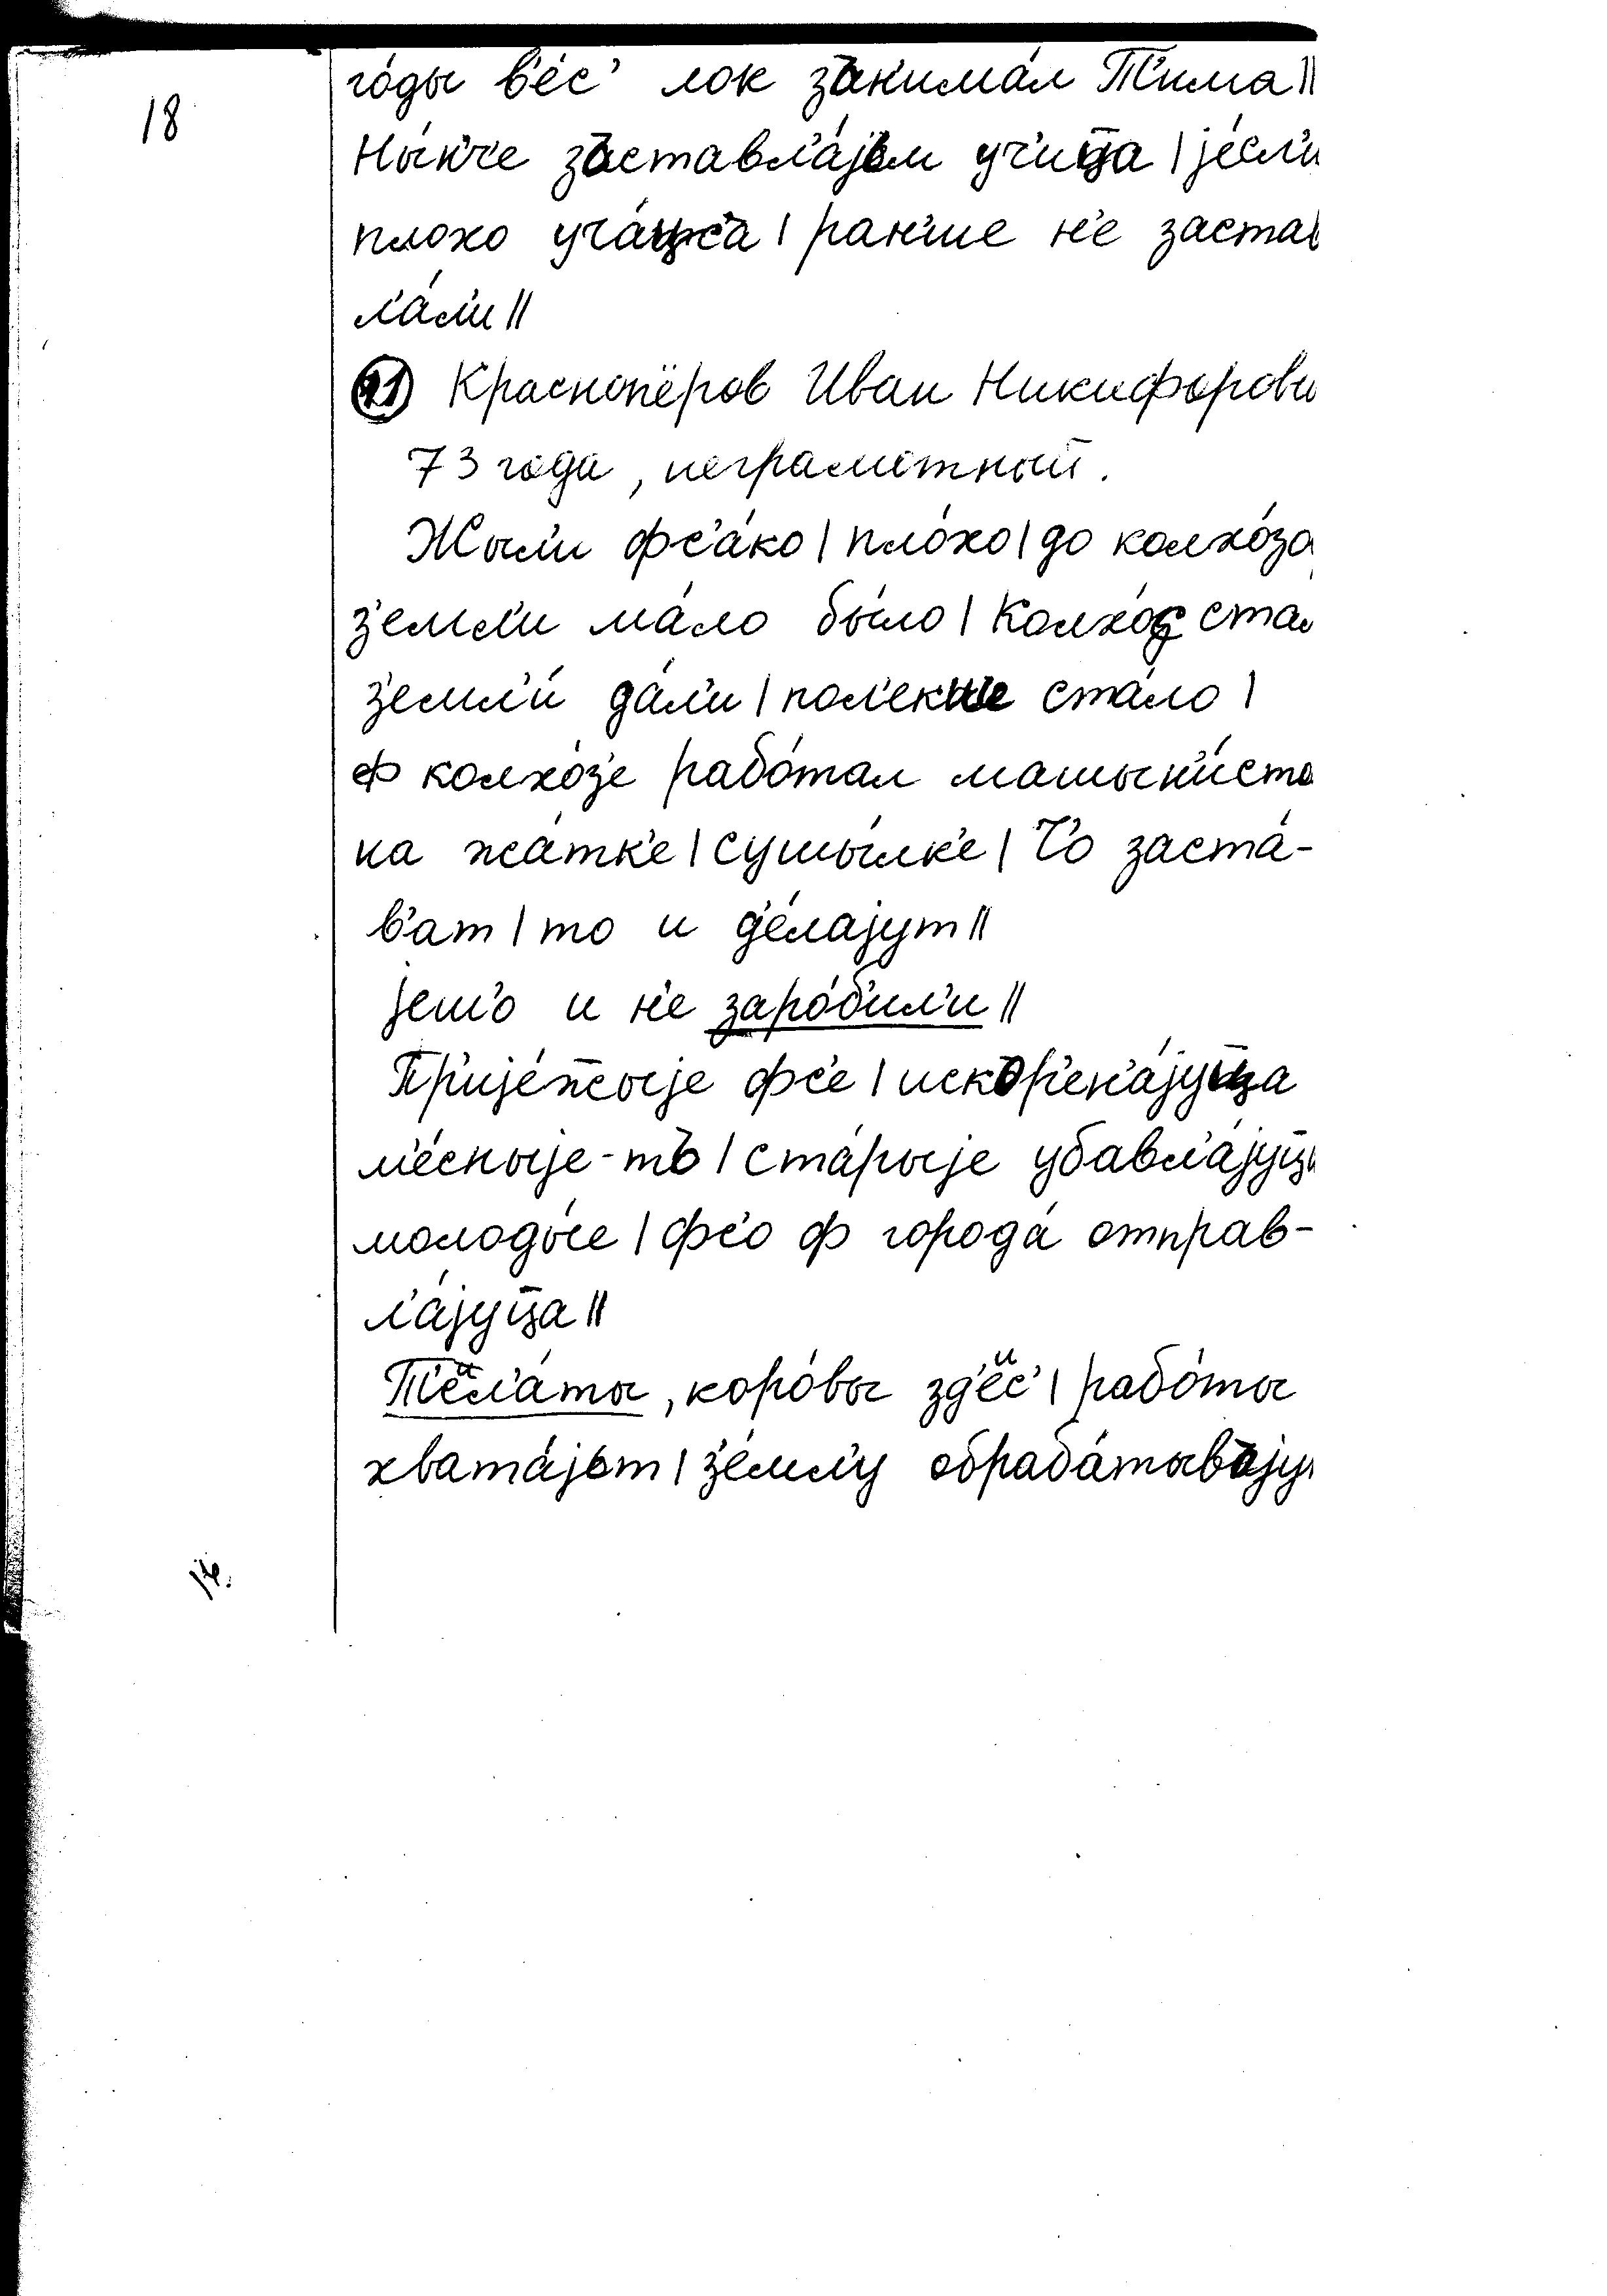 18
го́ды в'е́с' лок зан'има́л Т'има ||
Ны́н'ч'е заставл'а́јем уч'ица | је́сл'и
плохо уч'а́цс'а | ран'ше н'е застав
л'а́л'и ||
21 Краснопёров Иван Никифорови
73 года, неграмотный.
Жыл'и фс'а́ко | пло́хо | до колхо́за
з'емл'и ма́ло бы́ло | Колхо́с стал
з'емл'и́ да́л'и | пол'екше ста́ло |
ф колхо́з'е рабо́тал машын'и́сто
на жа́тк'е | сушы́лк'е | Ч'о заста́-
в'ат | то и д'е́лајут ||
јеш'о и н'е заро́б'ил'и ||
Пр'ије́жыје фс'е | искор'ен'а́јуца
м'е́сныје-тъ | ста́рыје убавл'а́јуц
молоды́е | фс'о ф города́ отправ-
л'а́јуца ||
Т'ел'а́ты, коро́вы зд'ес' | рабо́ты
хвата́јьт | з'е́мл'у обраба́тывајут